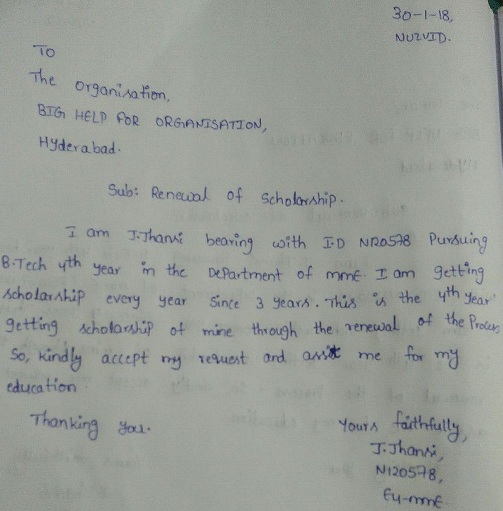 30-1-18,
NUZVID.
TO
The organisation,
BIG HELP FOR ORGANISATION,
Hyderabad.
Sub: Renewal of Scholarship.
I am J.Jhansi bearing with I.D NR0578 Pursuing
B.Tech 4th year in the Department of mme. I am getting
scholarship every year since 3 years. This is the 4th year
getting scholarship of mine through the renewal of the Process
So, kindly accept my request and assit me for my
education
Thanking you.
Yours faithfully,
J.Jhansi,
N120578,
E4-mme